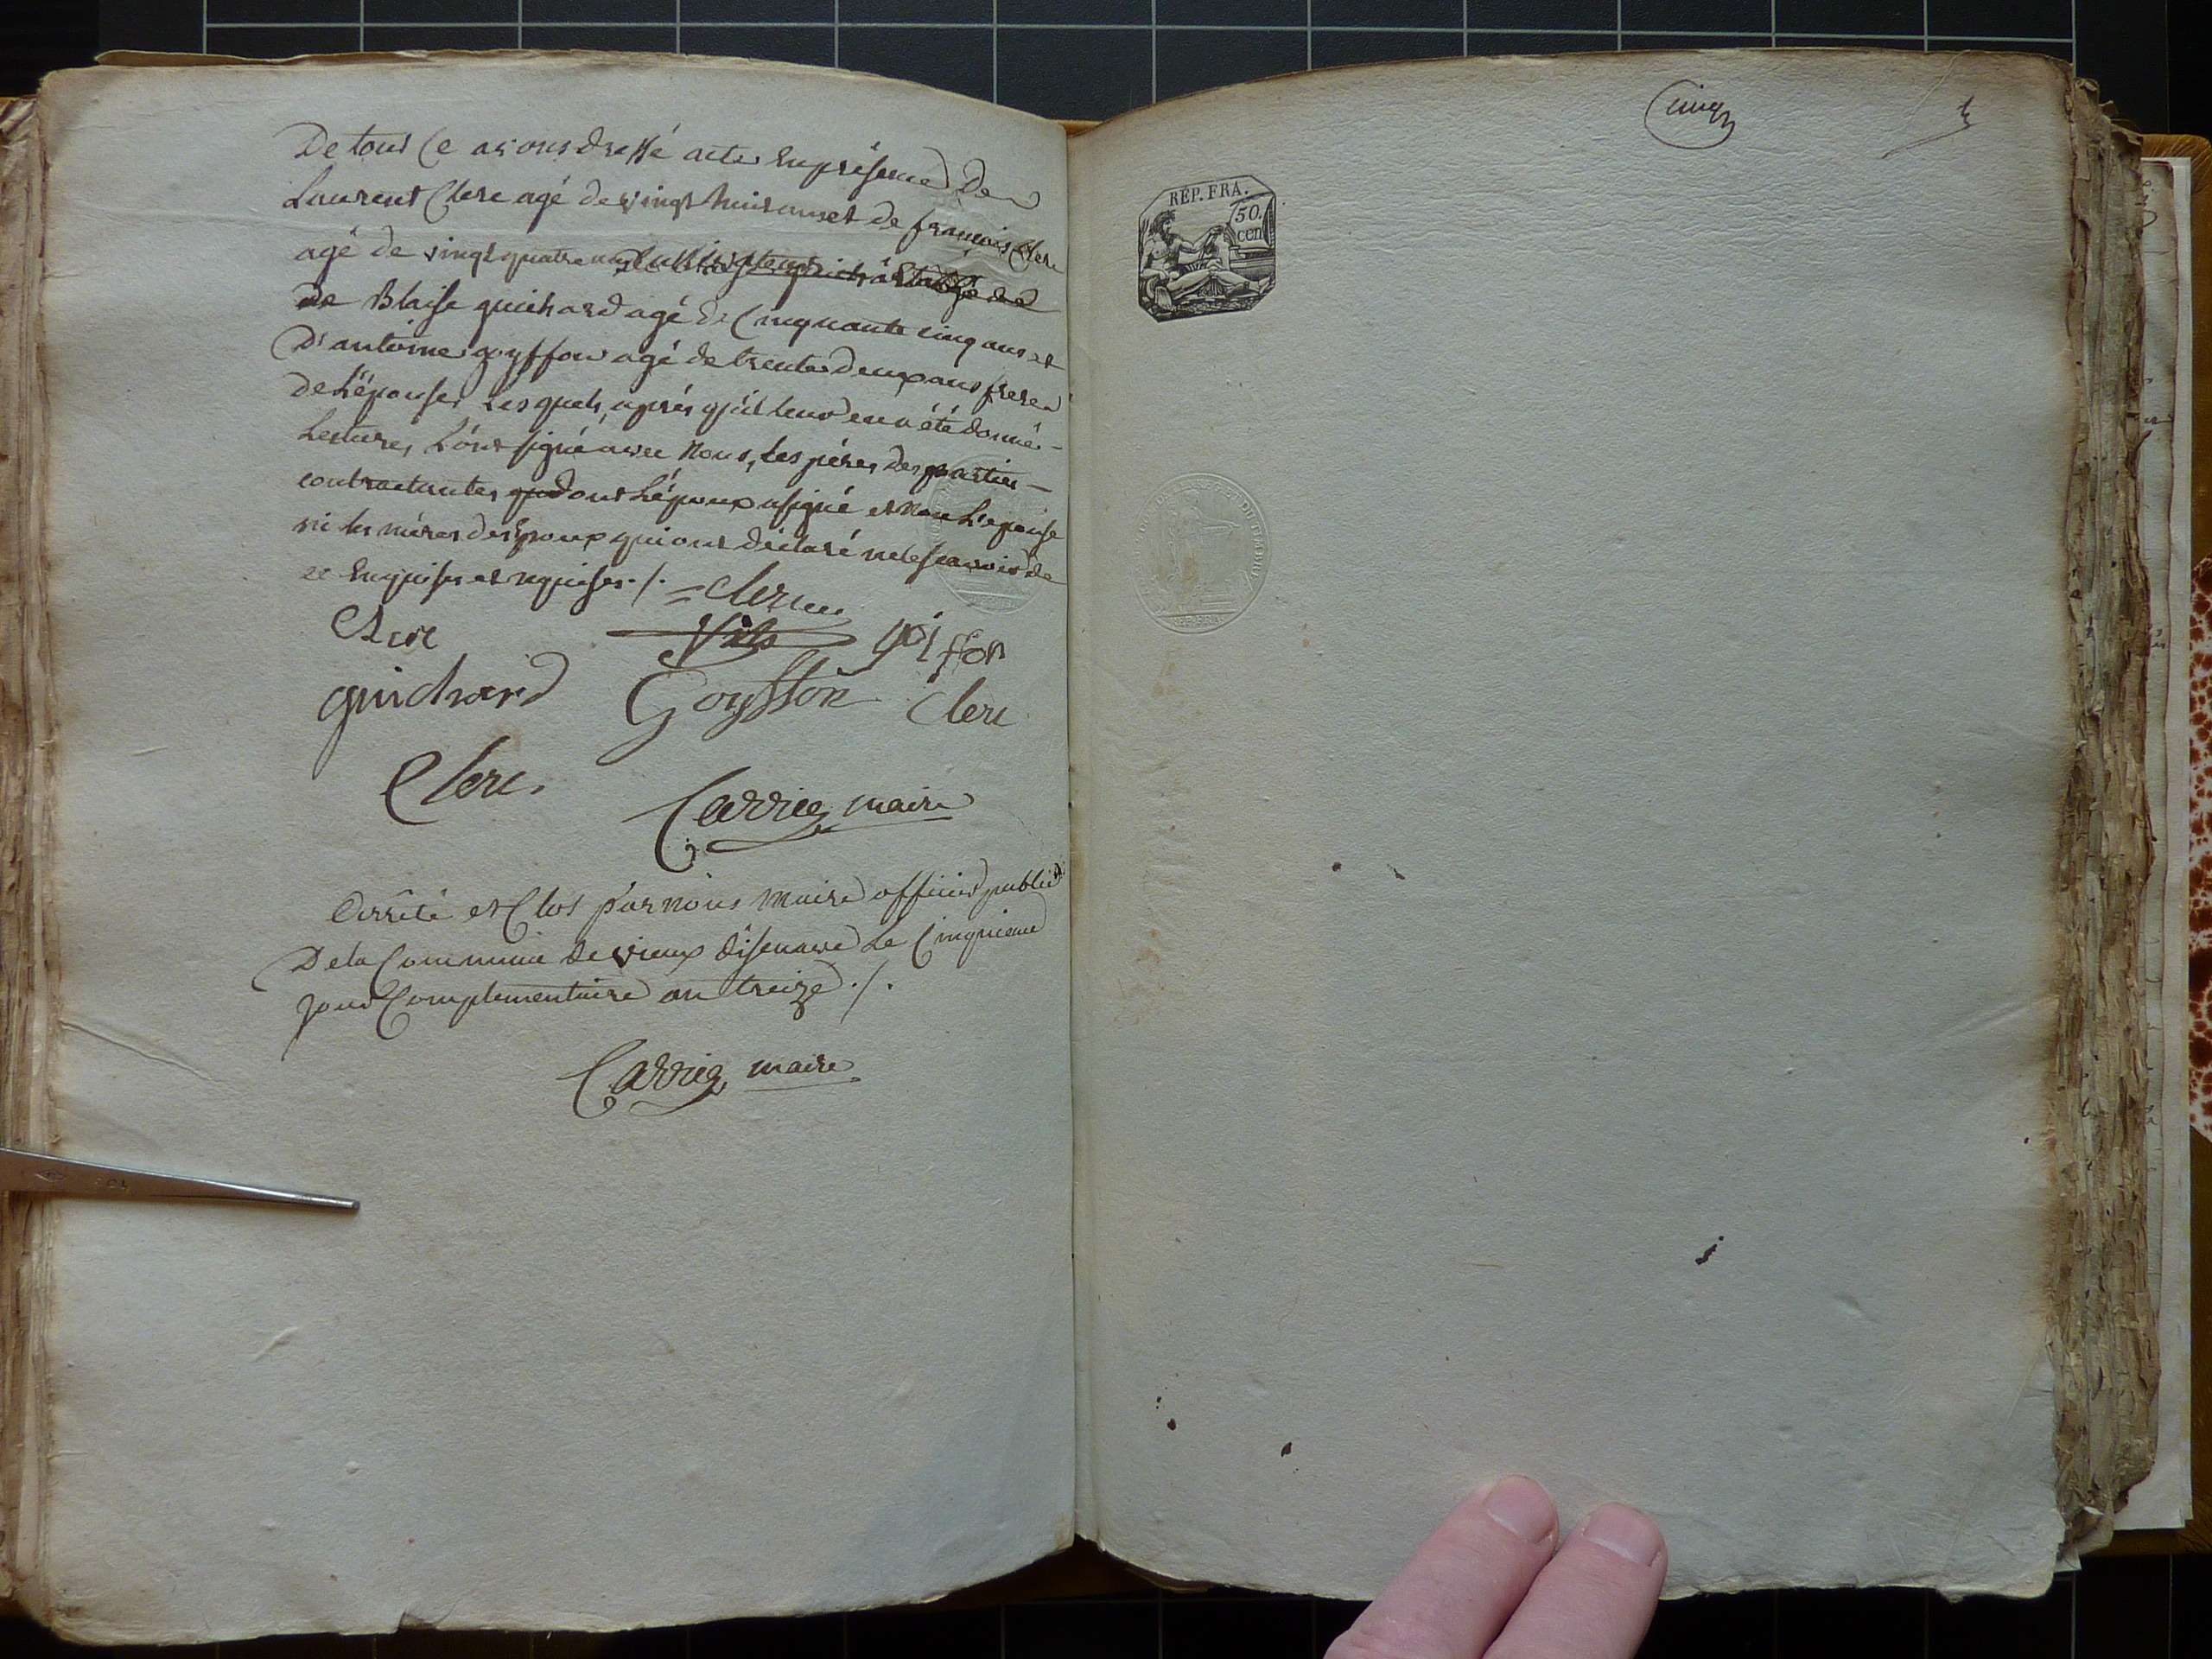 De tout Ce avons dressé acte En présence De
Laurent Clerc agé de vingt huit ans et de françois Clerc
agé de vingt quatre ans
de Blaise guichard agé de Cinquante cinq ans et
D'antoine goyffon agé de trente deux ans frere
de L'épouse, Lesquels, après qu'il leur en a été donné
Lecture, L'ont signé avec Nous, Les pères des parties
contractantes dont L'époux a signé et Non L'epouse
ni les mères des Epoux qui ont déclaré ne le scavoir de
ce Enquises et requises ./. = Clerc
Clerc fils goiffon
guichard Goyffon Clerc
Clerc
Carrier maire
Arrêté et Clos par nous Maire officier public
De la Commune de vieux d'isenave Le Cinquieme
Jour Complementaire an treize ./.
Carrier maire
Cinq
REP. FRA.
50.
cen